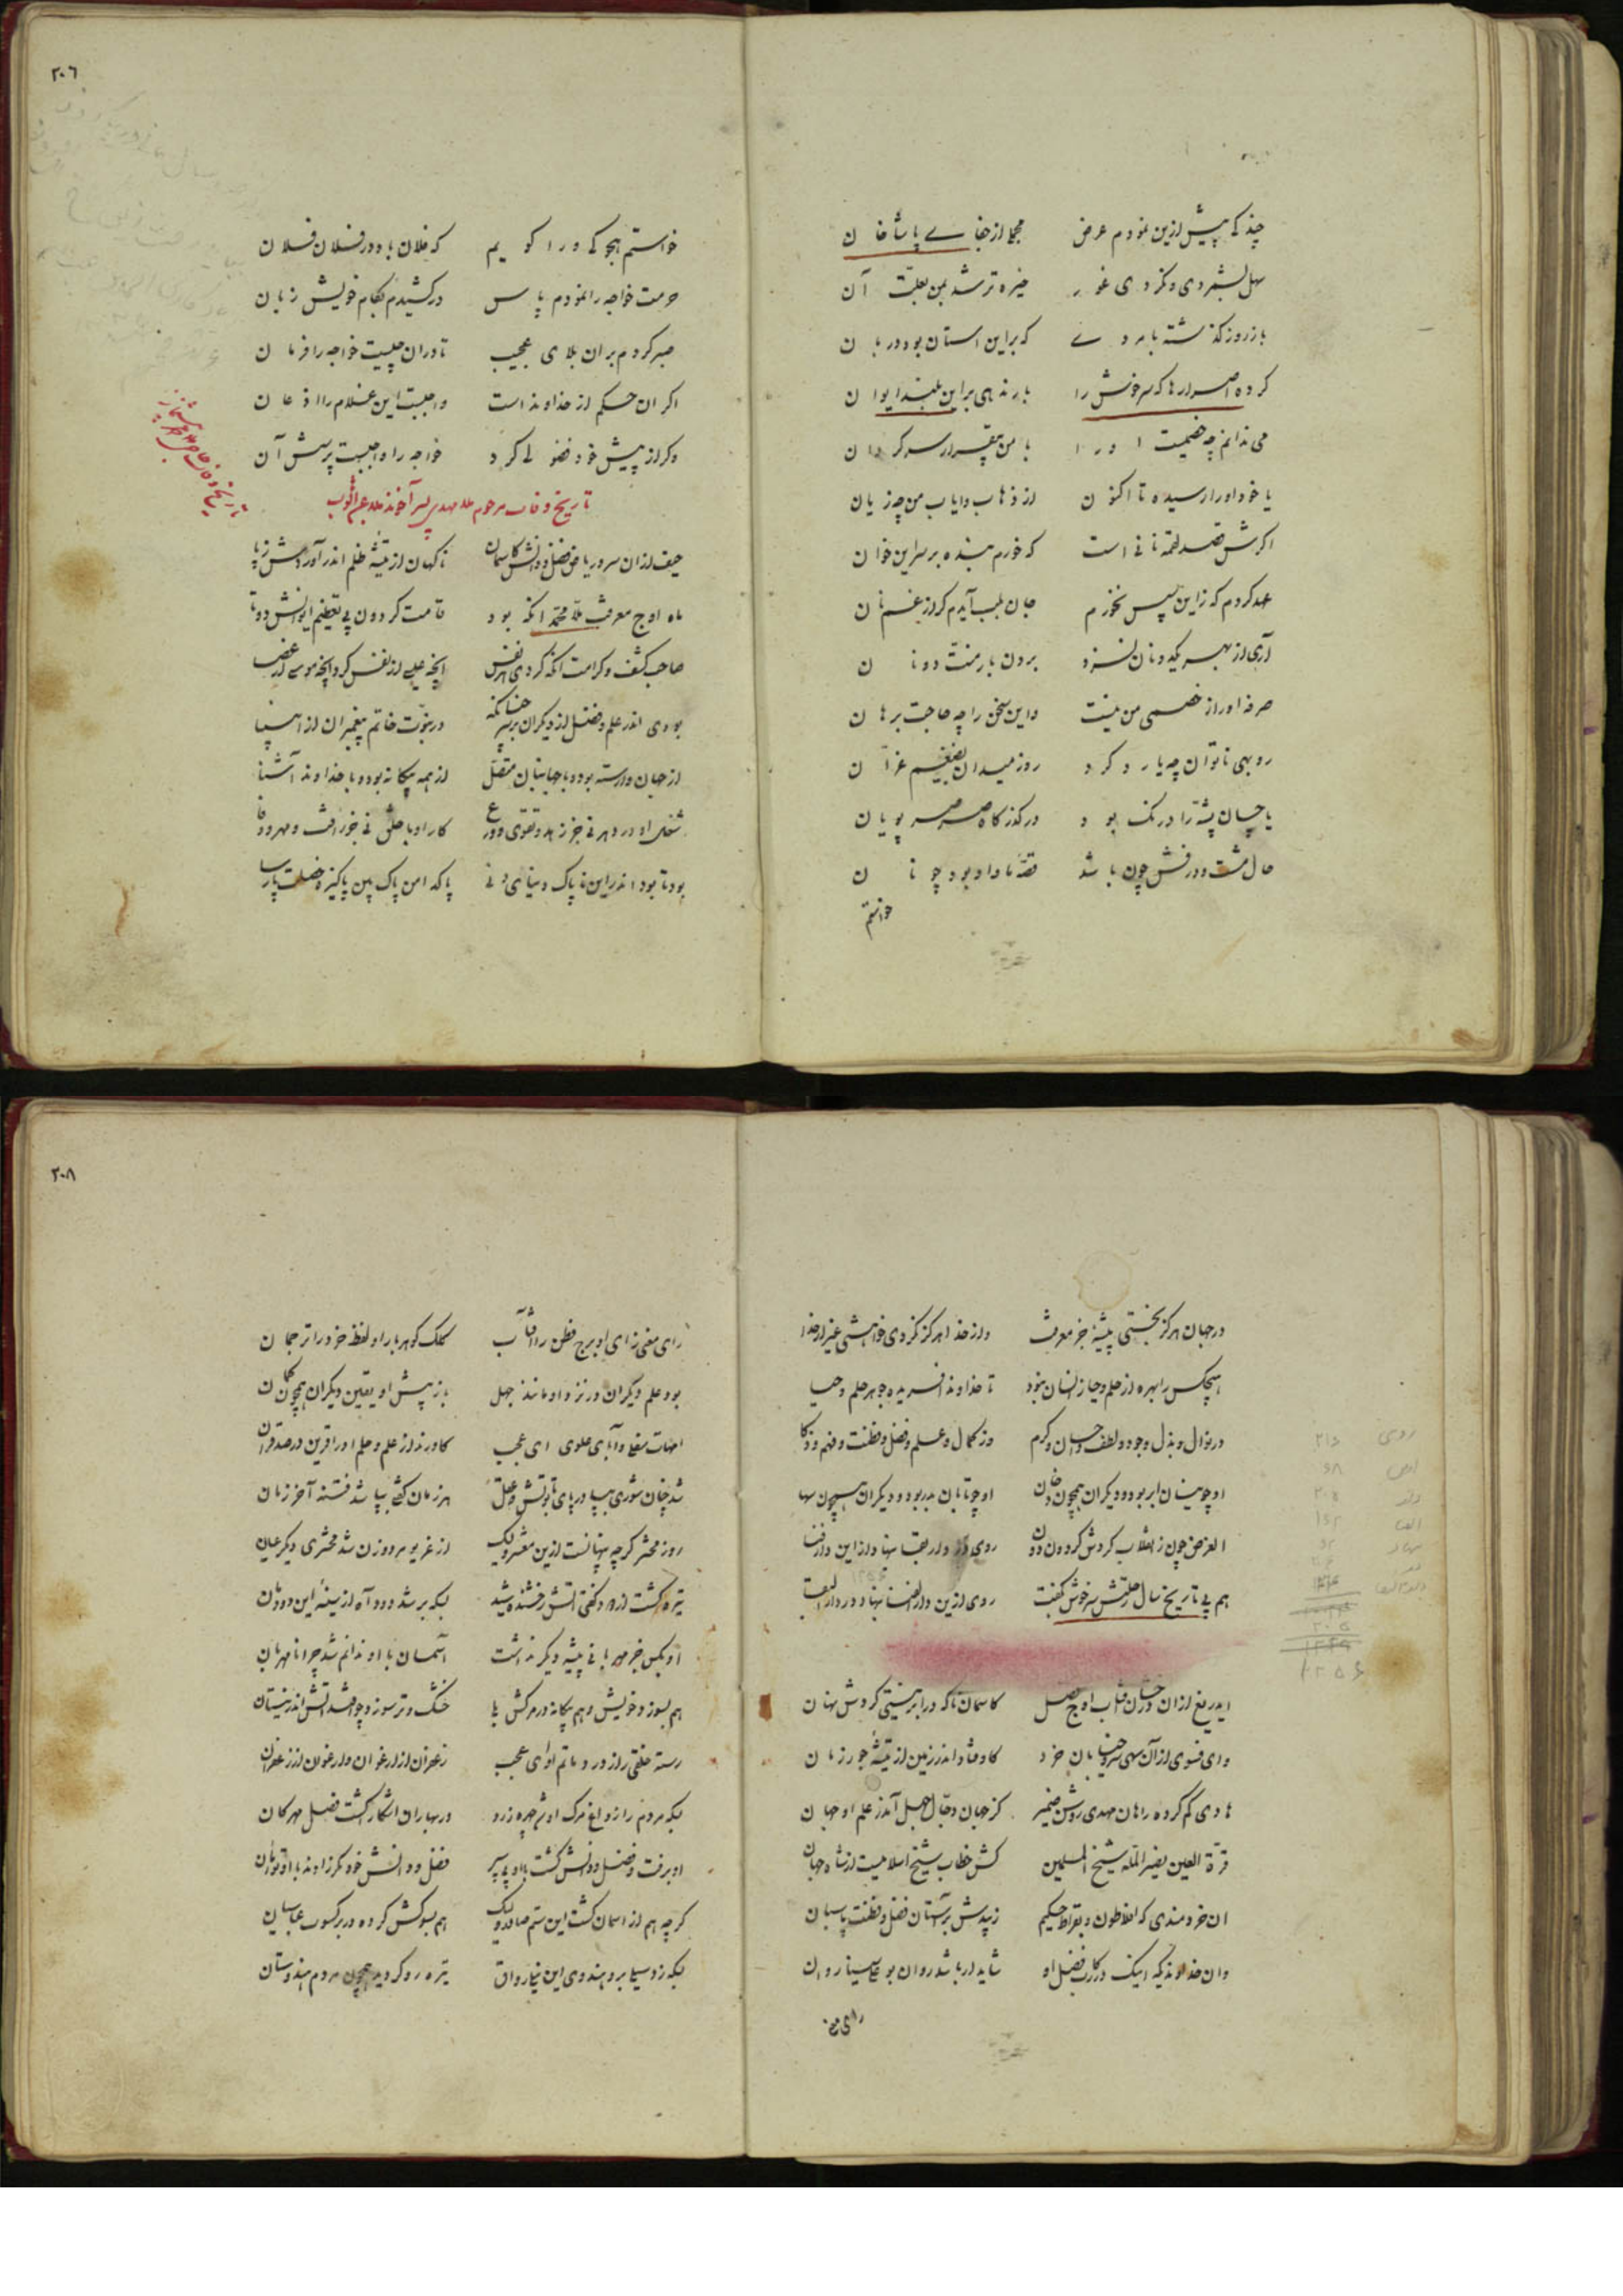 چند که پیش ازین نمودم عرض مجملا از جفای پاشاخان
سهل بشمردی و نکردی غور خیره تر شد بمن بعلت آن
باز روز گذشته نامردی که براین استان بود دربان
کرده اصرارها که سرخوش را بار ندهی براین بلند ایوان
می ندانم چه خصمیست او را با من بیقرار سرگردان
یا خود او را رسیده تا اکنون از ذهاب و ایاب من چه زیان
اگرش قصد لقمهٔ نانی است که خورم بنده بر سر این خوان
عهد کردم که زاین سپس نخورم جان بلب آیدم گر از غم نان
آری از بهر یکدو نان نسزد بردن بار منت دونان
صرفه او را ز خصمی من نیست واین سخن را چه حاجت برهان
روبهی ناتوان چه یارد کرد روز میدان بضیغم غرّان
یا چسان پشه را درنگ بود در گذرگاه صرصر پویان
حال مشت و درفش چون باشد قصهٔ ناودان بود چونان
خواستم
٢٠٦
خواستم هجوکی ورا گویم که فلان با دو در فلان فلان
حرمت خواجه را نمودم پاس درکشیدم بکام خویش زبان
صبر کردم بران بلای عجیب تا دران چیست خواجه را فرمان
اگر آن حکم از خداوند است واجبست این غلام را اذعان
ور از پیش خود فضولی کرد خواجه را واجبست پرسش آن
تاریخ وفات مرحوم ملا مهدی پسر آخوند ملا
حیف ازان سرو ریاض فضل و دانش کاسمان ناگهان از تیشهٔ ظلم اندر آوردش ز پا
ماه اوج معرفت ملا محمد انکه بود قامت گردون پی تعظیم ایوانش دوتا
صاحب کشف و کرامت انکه کردی هر نفس انچه عیسی از نفس کرد انچه موسی از عصا
بودی اندر علم و فضل از دیگران برتر چنانکه در نبوّت خاتم پیغمبران از انبیا
از جهان وارسته بود و با جهانبان متصل از همه بیگانه بود و با خداوند آشنا
شغل او در دهر نی جز زهد و تقوی و ورع کار او با خلق نی جز رافت و مهر و وفا
بود تا بود اندر این ناپاک دنیای دنی پاکدامن پاک بین پاکیزه خصلت پارسا
در جهان هرگز نجستی پیشهٔ جز معرفت واز خدا هرگز نکردی خواهشی غیر از خدا
هیچکس را بهره از حلم و حیا زانسان نبود تا خداوند آفریده جوهر حلم و حیا
در نوال و بذل و جود و لطف و احسان و کرم وز کمال و علم و فضل و فطنت و فهم و ذکا
او چو نیسان ابر بود و دیگران همچون دخان او چو تابان بدر بود و دیگران همچون سها
الغرض چون ز انقلاب گردش گردون دون روی در دار بقا بنهاد از این دار فنا
هم پی تاریخ سال رحلتش سرخوش بگفت روی ازین دار الفنا بنهاد در دار البقا
ایدریغ ازان درخشان آفتاب اوج فضل کاسمان ناگه در ابر نیستی کردش نهان
وای فسوی از آن سهی سرو خیابان خرد کاوفتاد اندر زمین از تیشهٔ جور زمان
هادی گم کرده راهان مهدی روشن ضمیر کز جهان دجّال جهل آمد ز علم او جهان
قرة العین نصیر المله شیخ المسلمین کش خطاب شیخ اسلامیست از شاه جهان
ان خردمندی که افلاطون و بقراط حکیم زیبدش بر آستان فضل و فطنت پاسبان
وان خداوندیکه اینک در رکاب فضل او شاید ار باشد روان بوعلی سینا روان
رای م
٢٠٨
رای معنی زای او برج فطن را آفتاب کلک گوهر بار او لفظ خرد را ترجمان
بود علم دیگران در نزد او مانند جهل باز پیش او یقین دیگران همچون گمان
امهات سفلی و آبای علوی ای عجب کاورند از علم و حلم او را قرین در صد قران
شد چنان شوری بپا در پای تابوتش ز خلق هر زمان گفتی بپا شد فتنهٔ آخر زمان
روز محشر گرچه پنهانست ازین معشر ولیک از غریو مرد و زن شد محشری دیگر عیان
تیره گشت از دود گفتی آتش رخشنده شید بسکه بر شد دود آه از سینهٔ این دودمان
او بکس جز مهربانی پیشهٔ دیگر نداشت آسمان با او ندانم شد چرا نامهربان
هم بسوزد خویش و هم بیگانه در مرگش بلی خشک و تر سوزد چو افتد آتش اندر نیستان
رسته خلقی را ز درد ماتم او ای عجب زعفران از ارغوان و ارغوان از زعفران
بسکه مردم را ز داغ مرگ او شد چهره زرد در بهاران آشکارا گشت فصل مهرگان
او برفت و فضل و دانش گشت با او پی سپر فضل و دانش خود مگر زادند با او توأمان
گرچه هم از اسمان گشت این ستم صادر ولیک هم بسوگش کرده در بر کسوت عباسیان
بسکه زد سیلی برو هندوی این نیلی رواق تیره رو گردید همچون مردم هندوستان